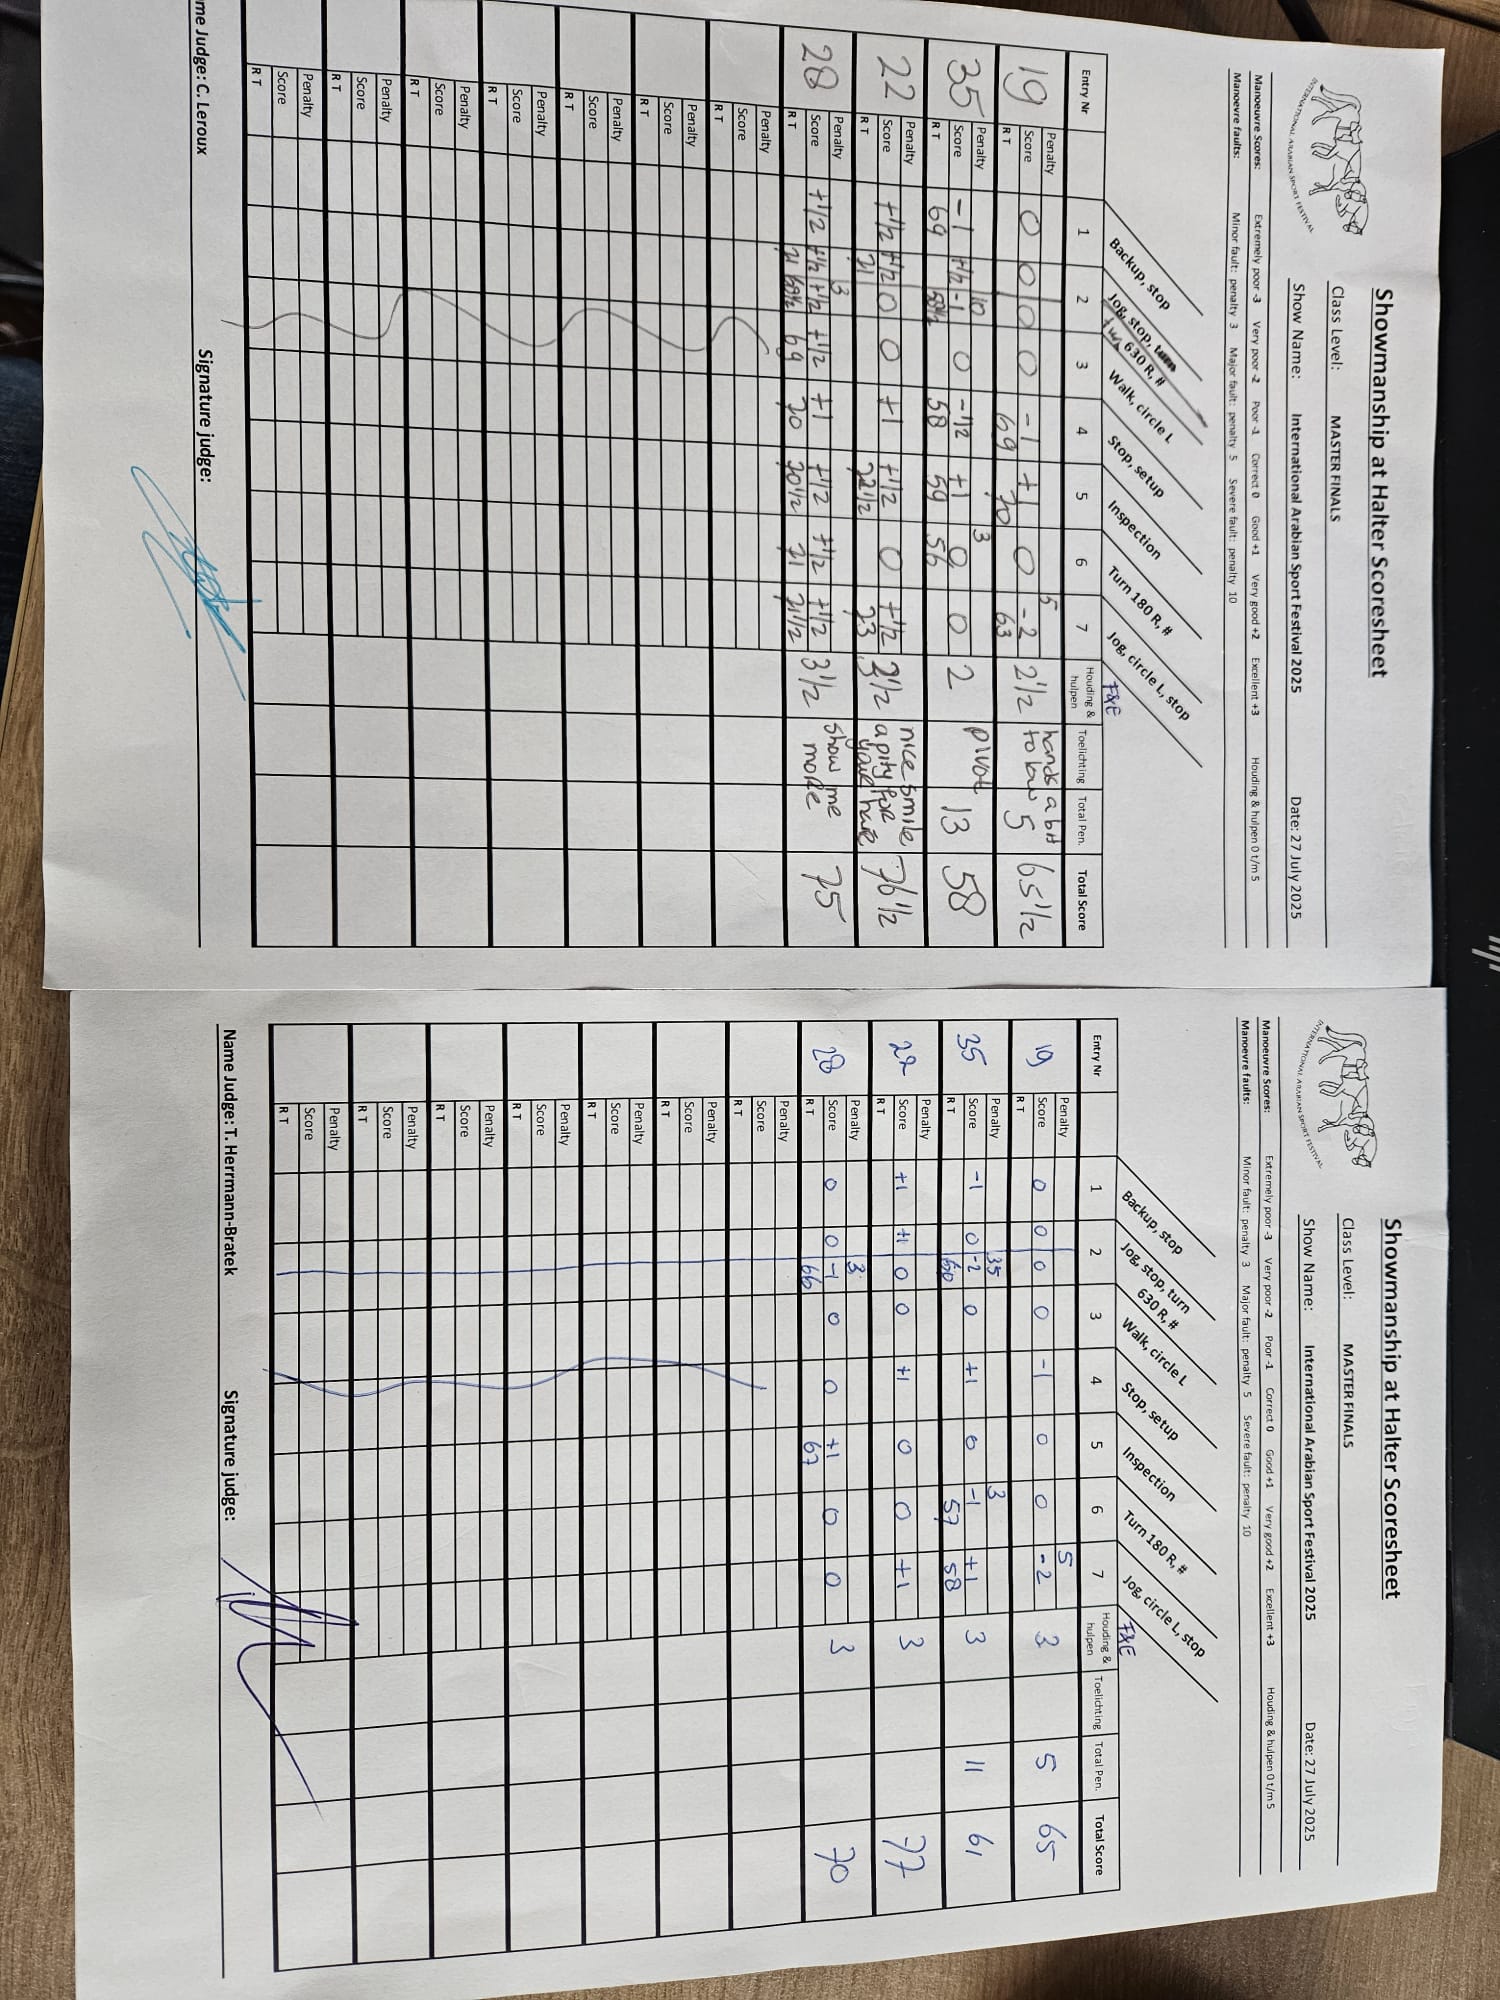 Showmanship at Halter Scoresheet
Class Level: MASTER FINALS
Show Name: International Arabian Sport Festival 2025 Date: 27 July 2025
INTERNATIONAL ARABIAN SPORT FESTIVAL
Manoeuvre Scores: Extremely poor -3 Very poor -2 Poor -1 Correct 0 Good +1 Very good +2 Excellent +3 Houding & hulpen 0 t/m 5
Manoevre faults: Minor fault: penalty 3 Major fault: penalty 5 Severe fault: penalty 10
Backup, stop
Jog, stop, turn
turn 630 R, #
Walk, circle L
Stop, setup
Inspection
Turn 180 R, #
Jog, circle L, stop
F&E
Entry Nr 1 2 3 4 5 6 7 Houding & hulpen Toelichting Total Pen. Total Score
19 Penalty 5 hands a bit
Score 0 0 0 0 -1 +1 0 -2 2 1/2 to low 5 65 1/2
R T 69 70 63
35 Penalty 10 3
Score -1 +1/2 -1 0 -1/2 +1 0 0 2 pivot 13 58
R T 69 58 1/2 58 59 56
22 Penalty nice smile
Score +1/2 +1/2 0 0 +1 +1/2 0 +1/2 3 1/2 a pity for 76 1/2
R T 71 72 1/2 73 your hate
28 Penalty 3
Score +1/2 +1/2 +1/2 +1/2 +1 +1/2 +1/2 +1/2 3 1/2 show me more 75
R T 71 68 1/2 69 70 70 1/2 71 71 1/2
Penalty
Score
R T
Penalty
Score
R T
Penalty
Score
R T
Penalty
Score
R T
Penalty
Score
R T
Penalty
Score
R T
Penalty
Score
R T
me Judge: C. Leroux Signature judge:
Showmanship at Halter Scoresheet
Class Level: MASTER FINALS
Show Name: International Arabian Sport Festival 2025 Date: 27 July 2025
INTERNATIONAL ARABIAN SPORT FESTIVAL
Manoeuvre Scores: Extremely poor -3 Very poor -2 Poor -1 Correct 0 Good +1 Very good +2 Excellent +3 Houding & hulpen 0 t/m 5
Manoevre faults: Minor fault: penalty 3 Major fault: penalty 5 Severe fault: penalty 10
Backup, stop
Jog, stop, turn
630 R, #
Walk, circle L
Stop, setup
Inspection
Turn 180 R, #
Jog, circle L, stop
F&E
Entry Nr 1 2 3 4 5 6 7 Houding & hulpen Toelichting Total Pen. Total Score
19 Penalty 5
Score 0 0 0 0 -1 0 0 -2 3 5 65
R T
35 Penalty 35 3
Score -1 0 -2 0 +1 0 -1 +1 3 11 61
R T 60 57 58
22 Penalty
Score +1 +1 0 0 +1 0 0 +1 3 77
R T
28 Penalty 3
Score 0 0 -1 0 0 +1 0 0 3 70
R T 66 67
Penalty
Score
R T
Penalty
Score
R T
Penalty
Score
R T
Penalty
Score
R T
Penalty
Score
R T
Penalty
Score
R T
Name Judge: T. Herrmann-Bratek Signature judge: